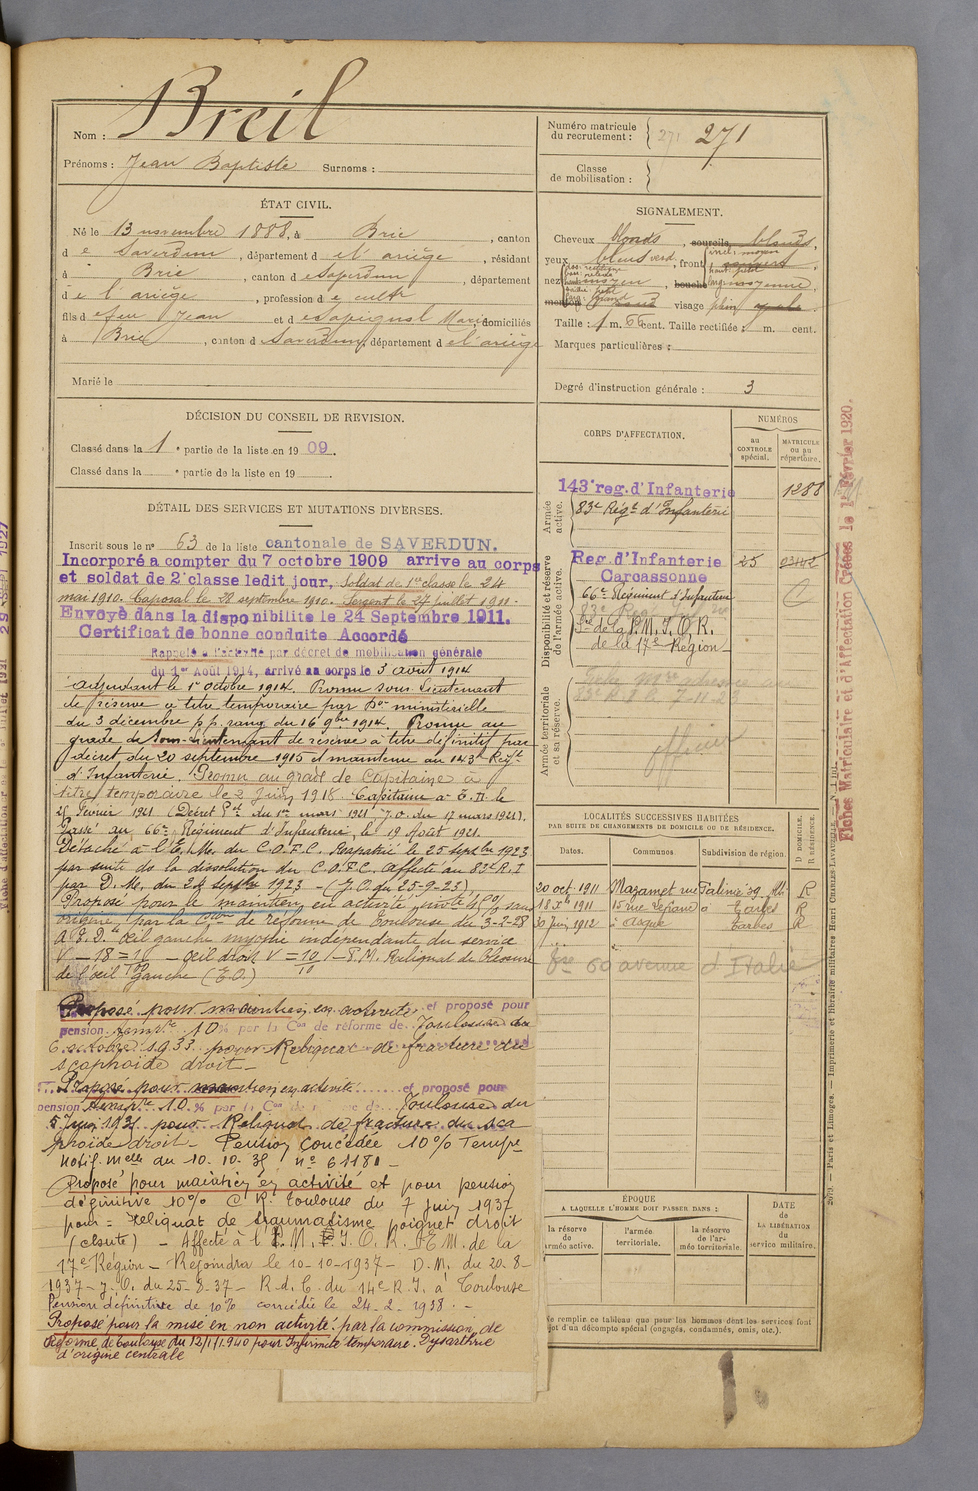 Nom : Breil
Prénoms : Jean Baptiste Surnoms :
Numéro matricule du recrutement : 271 271
Classe de mobilisation :
ÉTAT CIVIL.
Né le 13 novembre 1888, à Brie, canton
de Saverdun, département de l'ariège, résidant
à Brie, canton de Saverdun, département
de l'ariège, profession de cultr
fils de feu Jean et de Marie domiciliés
à Brie, canton de Saverdun, département de l'ariège
Marié le
SIGNALEMENT.
Cheveux blonds, sourcils blonds,
yeux bleus verd, front
nez moyen bouche moyenne,
menton rond visage plein ovale.
Taille : 1 m. 66 cent. Taille rectifiée : m. cent.
Marques particulières :
Degré d'instruction générale : 3
DÉCISION DU CONSEIL DE REVISION.
Classé dans la 1e partie de la liste en 1909.
Classé dans la e partie de la liste en 19
DÉTAIL DES SERVICES ET MUTATIONS DIVERSES.
Inscrit sous le no 63 de la liste cantonale de SAVERDUN.
Incorporé a compter du 7 octobre 1909 arrive au corps
et soldat de 2e classe ledit jour, Soldat de 1re classe le 24
mai 1910. Caporal le 28 septembre 1910. Sergent le 27 juillet 1911.
Envoyé dans la disponibilite le 24 Septembre 1911.
Certificat de bonne conduite Accordé
Rappelé à l'activité par décret de mobilisation générale
du 1er Août 1914, arrivé au corps le 3 août 1914
adjudant le 1r octobre 1914. Promu sous Lieutenant
de réserve à titre temporaire par Don ministérielle
du 3 décembre pr rang du 16 9bre 1914. Promu au
grade de Sous-Lieutenant de réserve à titre définitif par
décret du 20 septembre 1915 et maintenu au 143e Regt
d'Infanterie. Promu au grade de Capitaine à
titre temporaire le 2 Juin 1918. Capitaine à T.D. le
25 Février 1921 (Décret Pel du 1er mars 1921 J.O. du 17 mars 1921).
Passé au 66e Régiment d'Infanterie, le 19 Août 1921.
Détaché à l'E.M. du C.O.F.C. Rapatrié le 25 septbre 1923
par suite de la dissolution du C.O.F.C. affecté au 83e R.I
par D.M. du 24 septbre 1923 - (J.O. du 25-9-23)
Proposé pour le maintien en activité
par la Con de réforme de Toulouse du 3-2-28
œil gauche myopie indépendante du service
œil droit V = 10/10 - P.M. Reliquat de blessure
de l'œil gauche (E.O.)
Proposé pour maintien en activité et proposé pour
pension tempre 10% par la Con de réforme de Toulouse du
6 octobre 1933 pour Reliquat de fracture du
scaphoïde droit -
Proposé pour maintien en activité et proposé pour
pension tempre 10 % par la Con de réforme de Toulouse du
5 Juin 1935 pour Reliquat de fracture du sca
phoïde droit - Pension concédée 10% Tempre
Notif. melle du 10-10-35 no 61181 -
Proposé pour maintien en activité et pour pension
définitive 10% C.R. Toulouse du 7 Juin 1937
pour = Reliquat de traumatisme poignet droit
(chute) - Affecté à l'P.M.I.O.R. EM. de la
17e Région - Rejoindra le 10-10-1937 - D.M. du 20-8-
1937 - J.O. du 25-8-37 - R.d.C. du 14e R.I. à Toulouse
Pension définitive de 10% concédée le 24-2-1938. -
Proposé pour la mise en non activité par la commission de
Réforme de Toulouse du 12/1/1940 pour Infirmité temporaire. Dysarthrie
d'origine centrale
CORPS D'AFFECTATION.
NUMÉROS
au CONTROLE spécial.
MATRICULE ou au répertoire.
Armée active.
143e reg. d'Infanterie 1288
83e Régt d'Infanterie
Disponibilité et réserve de l'armée active.
Reg. d'Infanterie 25
Carcassonne
66e Régiment d'Infanterie
de la P.M.I.O.R.
de la 17e Région
Armée territoriale et sa réserve.
officier
LOCALITÉS SUCCESSIVES HABITÉES
PAR SUITE DE CHANGEMENTS DE DOMICILE OU DE RÉSIDENCE.
Dates. Communes. Subdivision de région. D DOMICILE. R RÉSIDENCE.
20 oct. 1911 Mazamet rue Galinié 39 Albi R
18 Xbre 1911 15 rue à Tarbes R
30 Juin 1912 Tarbes R
60 avenue d'Italie
ÉPOQUE
A LAQUELLE L'HOMME DOIT PASSER DANS :
la réserve de l'armée active.
l'armée territoriale.
la réserve de l'armée territoriale.
DATE de LA LIBÉRATION du service militaire.
Ne remplir ce tableau que pour les hommes dont les services font
l'objet d'un décompte spécial (engagés, condamnés, omis, etc.).
Fiches Matriculaire et d'Affectation Créées le 1er Février 1920.
2679. — Paris et Limoges. — Imprimerie et librairie militaires Henri CHARLES-LAVAUZELLE.